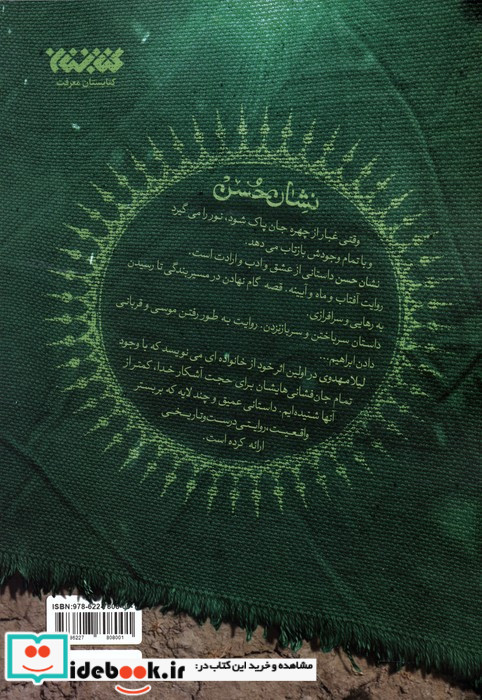 کتابستان
کتابستان معرفت
نشان حُسن
وقتی غبار از چهره جان پاک شود، نور را می گیرد
و با تمام وجودش بازتاب می دهد.
نشان حسن داستانی از عشق و ادب و ارادت است.
روایت آفتاب و ماه و آیینه. قصه گام نهادن در مسیر بندگی تا رسیدن
به رهایی و سرافرازی.
داستان سر باختن و سر باز نزدن. روایت به طور رفتن موسی و قربانی
دادن ابراهیم...
لیلا مهدوی در اولین اثر خود از خانواده ای می نویسد که با وجود
تمام جان فشانی هایشان برای حجت آشکار خدا، کمتر از
آنها شنیده ایم. داستانی عمیق و چند لایه که بر بستر
واقعیت، روایتی درست و تاریخی
ارائه کرده است.
ISBN: 978-622-
808001
idebook.ir
مشاهده و خرید این کتاب در: